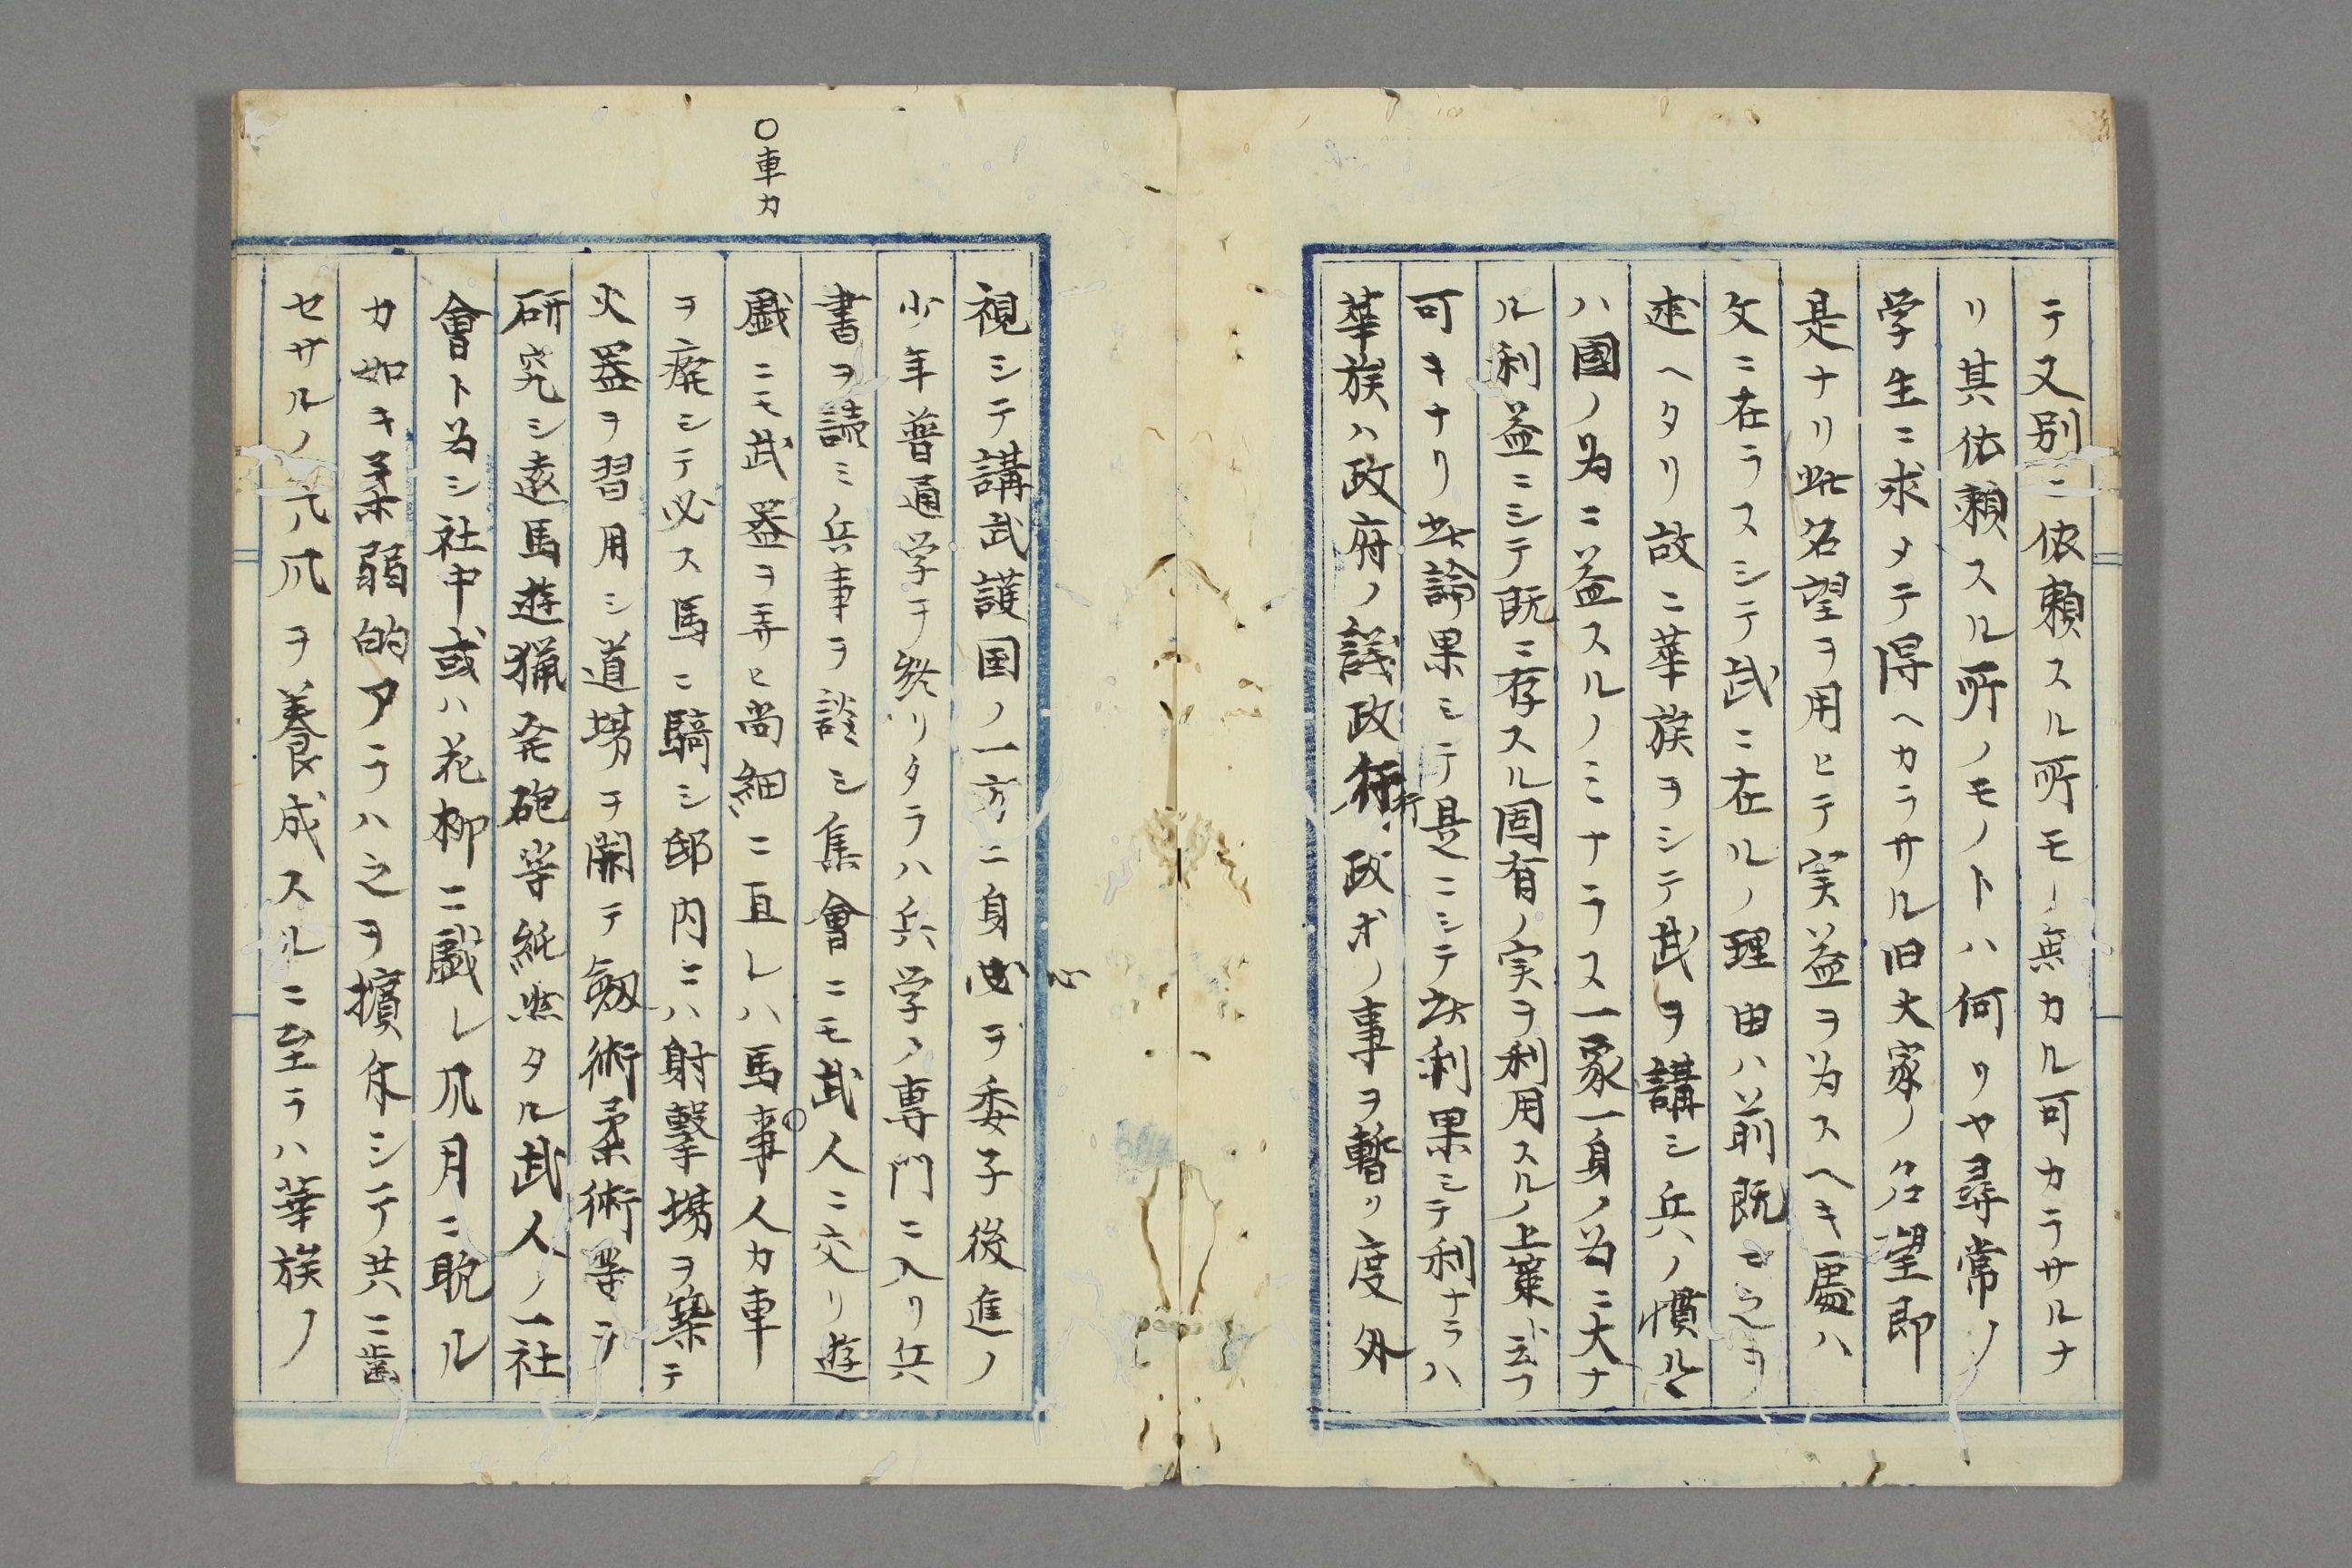 テ又別ニ依頼スル所モノ無カル可カラサルナ
リ其依頼スル所ノモノトハ何リヤ尋常ノ
学生ニ求メテ得ヘカラサル旧大家ノ名望即
是ナリ此名望ヲ用ヒテ実益ヲ為スヘキ處ハ
文ニ在ラスシテ武ニ在ルノ理由ハ前既ニ之ヲ
述ヘタリ故ニ華族ヲシテ武ヲ講シ兵ノ慣ル
ハ國ノ為ニ益スルノミナラス一家一身ノ為ニ大ナ
ル利益ニシテ既ニ存スル固有ノ実ヲ利用スルノ上策ト云フ
可キナリ此論果シテ是ニシテ此利果シテ利ナラハ
華族ハ政府ノ議政行政ホノ事ヲ暫ク度外
行
視シテ講武護国ノ一方ニ身ヲ委子後進ノ
心
少年普通学ヲ終リタラハ兵学ノ専門ニ入リ兵
書ヲ読ミ兵事ヲ談シ集會ニモ武人ニ交リ遊
戯ニモ武器ヲ弄ヒ尚細ニ直レハ馬事人力車
○車カ
ヲ廃シテ必ス馬ニ騎シ邸内ニハ射撃場ヲ築テ
火器ヲ習用シ道場ヲ開テ剱術柔術等ヲ
研究シ遠馬遊猟発砲等純然タル武人ノ一社
會ト為シ社中或ハ花柳ニ戯レ爪月ニ耽ル
カ如キ柔弱的アラハ之ヲ擯斥シテ共ニ歯
セサルノ爪ヲ養成スルニ至ラハ華族ノ